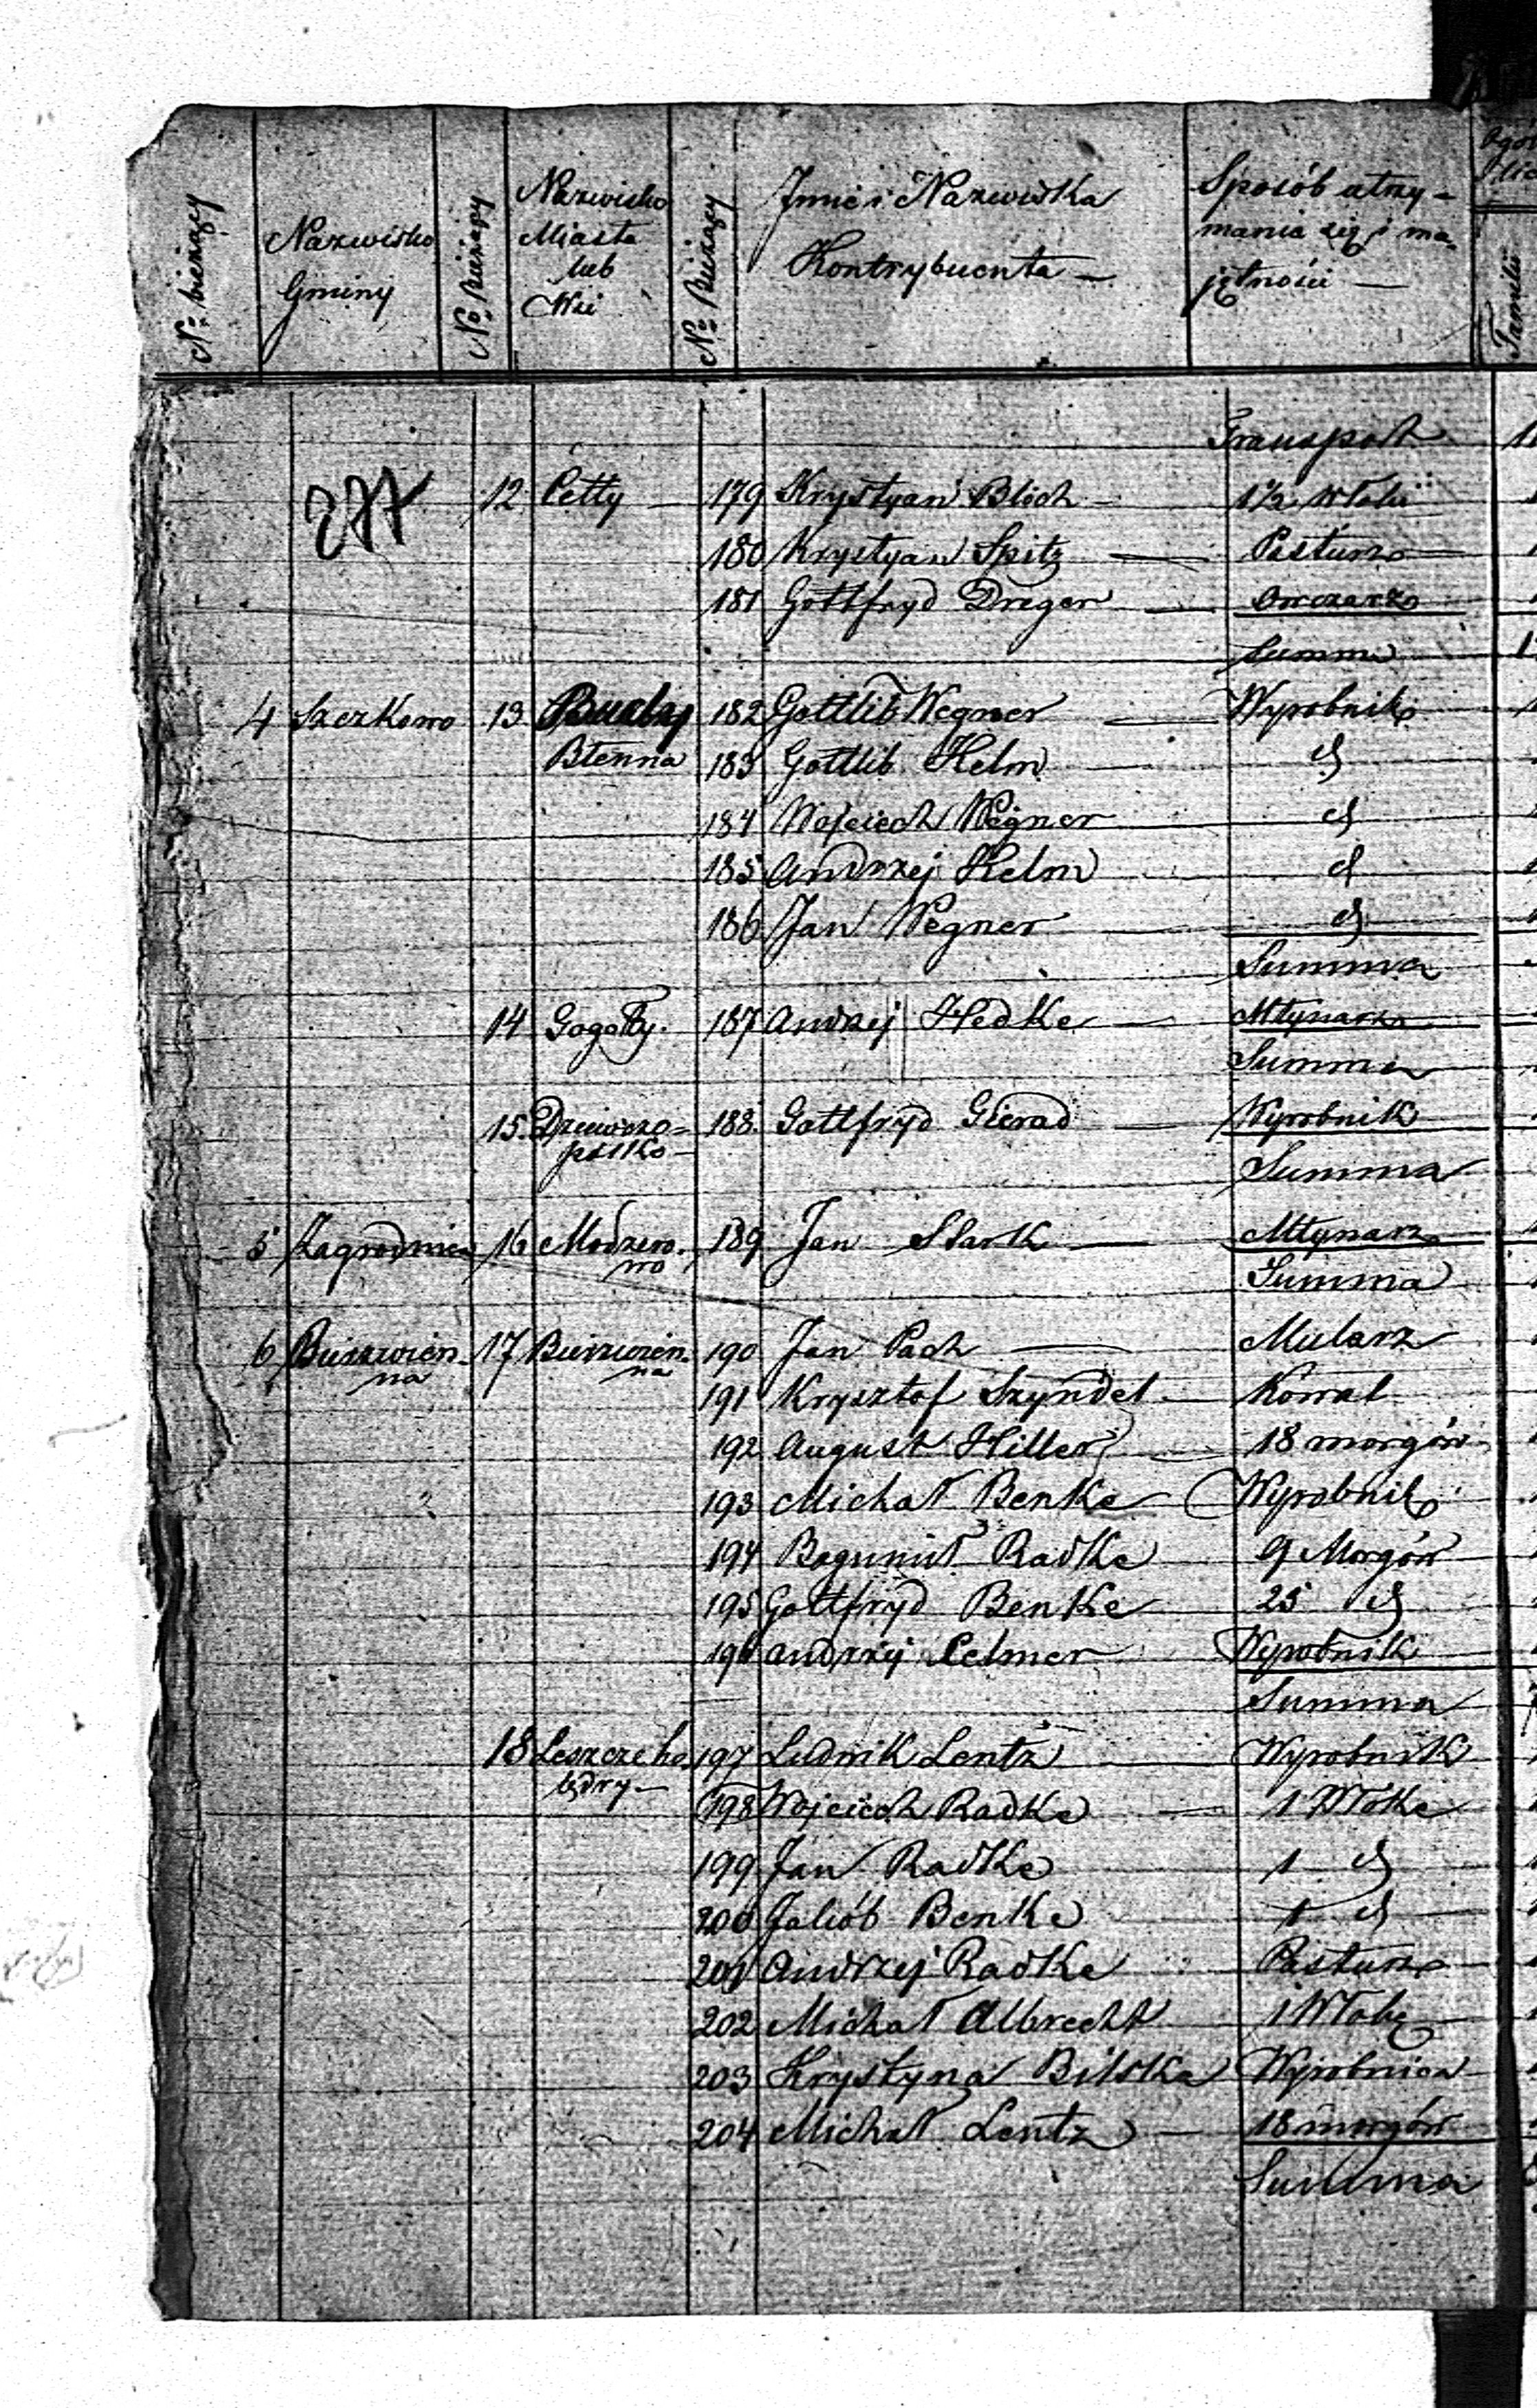 No. bieżący
Nazwisko
Gminy
No. Bieżący
Nazwisko
Miasta
lub
Wsi
No. Bieżący
Imie i Nazwiska
Kontrybuenta —
Sposób utrzy-
mania się i ma-
jętności —
Familii
Transport
12 Cetty — 179 Krystyan Bloch — 1½ Włoki
180 Krystyan Spitz — Pasturz
181 Gottfryd Dreger — Owczarz
Summa
4 Szczkowo 13 Budy 182 Gottlib Wegner — Wyrobnik
Błenna 183 Gottlib Helm — d
184 Wojciech Wegner — d
185 Andrzej Helm — d
186 Jan Wegner — d
Summa
14 Gogoły. 187 Andrzej Hedke — Młynarz
Summa
15 Dziwczo= 188. Gottfryd Gierad — Wyrobnik
Summa
5 Zagrodnica 16 Modzero- 189 Jan Stark — Młynarz
wo Summa
6 Bierzwien- 17 Bierzwien- 190 Jan Pach — Mularz
na na
191 Krysztof Szyndel — Kowal
192 August Hiller — 18 morgów
193 Michał Benke — Wyrobnik
194 Bogumił Radke 9 Morgów
195 Gottfryd Benke 25 d
196 Andrzej Pelmer Wyrobnik
Summa
18 Leszcze ho- 197 Ludwik Lentz — Wyrobnik
lędry — 198 Wojciech Radke — 1 Włoke
199 Jan Radke 1 d
200 Jakób Benke 1 d
201 Andrzej Radke Pasturz
202 Michał Albrecht 1 Włokę
203 Krystyna Bilska Wyrobnica
204 Michał Lentz — 18 morgów
Summa